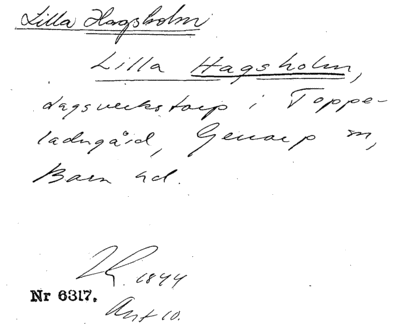 Lilla Hagsholm
Lilla Hagsholm,
dagsverkstorp i Toppe-
ladugård, Genarp sn,
Bara hd.
1844
Nr 6317.
Ant 10.